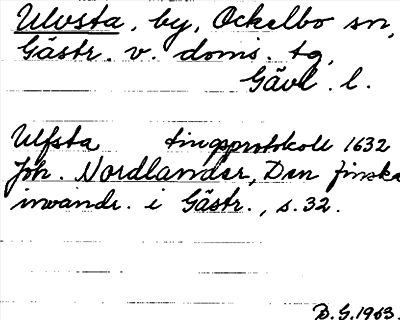 Ulvsta, by, Ockelbo sn,
Gästr. v. doms. tg,
Gävl. l.
Ulfsta tingsprotokoll 1632
Joh. Nordlander, Den finska
invandr. i Gästr., s. 32.
B.G. 1963.